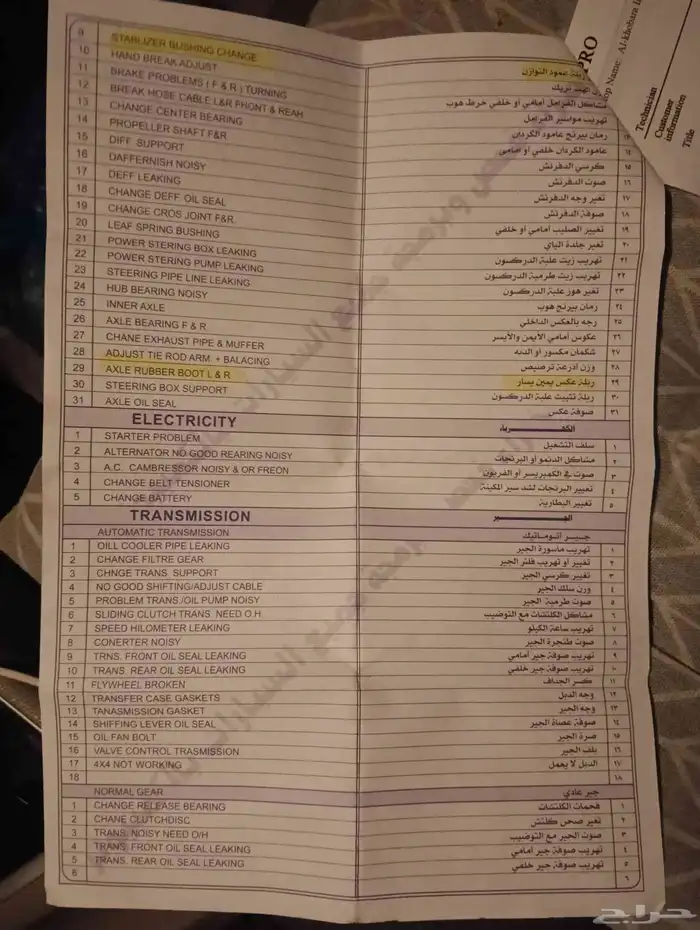 PRO
op Name: Al-khobara
Technician
Customer information
Title
9 STARLIZER BUSHING CHANGE ربلة عمود التوازن
10 HAND BREAK ADJUST
11 BRAKE PROBLEMS ( F & R ) TURNING مشاكل الفرامل أمامي أو خلفي خرط هوب
12 BREAK HOSE CABLE L&R PHONT & REAH تهريب مواسير الفرامل
13 CHANGE CENTER BEARING رمان بيرنج عامود الكردان ١٣
14 PROPELLER SHAFT F&R عامود الكردان خلفي أو أمامي ١٤
15 DIFF SUPPORT كرسي الدفرنش ١٥
16 DAFFERNISH NOISY صوت الدفرنش ١٦
17 DEFF LEAKING تغير وجه الدفرنش ١٧
18 CHANGE DEFF OIL SEAL صوفة الدفرنش ١٨
19 CHANGE CROS JOINT F&R. تغيير الصليب أمامي أو خلفي ١٩
20 LEAF SPRING BUSHING تغير جلدة الياي ٢٠
21 POWER STERING BOX LEAKING تهريب زيت علبة الدركسون ٢١
22 POWER STERING PUMP LEAKING تهريب زيت طرمبة الدركسون ٢٢
23 STEERING PIPE LINE LEAKING تغير هوز علبة الدركسون ٢٣
24 HUB BEARING NOISY رمان بيرنج هوب ٢٤
25 INNER AXLE رجه بالعكس الداخلي ٢٥
26 AXLE BEARING F & R عكوس أمامي الأيمن والأيسر ٢٦
27 CHANE EXHAUST PIPE & MUFFER شكمان مكسور أو الدبه ٢٧
28 ADJUST TIE ROD ARM. + BALACING وزن أذرعة ترصيص ٢٨
29 AXLE RUBBER BOOT L & R ربلة عكس يمين يسار ٢٩
30 STEERING BOX SUPPORT ربلة تثبيت علبة الدركسون ٣٠
31 AXLE OIL SEAL صوفة عكس ٣١
ELECTRICITY الكهرباء
1 STARTER PROBLEM سلف التشغيل ١
2 ALTERNATOR NO GOOD REARING NOISY مشاكل الدنمو أو البرنجات ٢
3 A.C. CAMBRESSOR NOISY & OR FREON صوت في الكمبريسر أو الفريون ٣
4 CHANGE BELT TENSIONER تغيير البرنجات لشد سير المكينة ٤
5 CHANGE BATTERY تغيير البطارية ٥
TRANSMISSION الجير
AUTOMATIC TRANSMISSION جير أتوماتيك
1 OILL COOLER PIPE LEAKING تهريب ماسورة الجير ١
2 CHANGE FILTRE GEAR تغيير أو تهريب فلتر الجير ٢
3 CHNGE TRANS. SUPPORT تغيير كرسي الجير ٣
4 NO GOOD SHIFTING/ADJUST CABLE وزن سلك الجير ٤
5 PROBLEM TRANS./OIL PUMP NOISY صوت طرمبة الجير ٥
6 SLIDING CLUTCH TRANS. NEED O.H مشاكل الكلتشات مع التوضيب ٦
7 SPEED HILOMETER LEAKING تهريب ساعة الكيلو ٧
8 CONERTER NOISY صوت طنجرة الجير ٨
9 TRNS. FRONT OIL SEAL LEAKING تهريب صوفة جير أمامي ٩
10 TRANS. REAR OIL SEAL LEAKING تهريب صوفة جير خلفي ١٠
11 FLYWHEEL BROKEN كسر الحداف ١١
12 TRANSFER CASE GASKETS وجه الدبل ١٢
13 TANASMISSION GASKET وجه الجير ١٣
14 SHIFFING LEVER OIL SEAL صوفة عصاة الجير ١٤
15 OIL FAN BOLT صرة الجير ١٥
16 VALVE CONTROL TRASMISSION بلف الجير ١٦
17 4X4 NOT WORKING الدبل لا يعمل ١٧
18 ١٨
NORMAL GEAR جير عادي
1 CHANGE RELEASE BEARING فحمات الكلتشات ١
2 CHANE CLUTCHDISC تغير صحن كلتش ٢
3 TRANS. NOISY NEED O/H صوت الجير مع التوضيب ٣
4 TRANS. FRONT OIL SEAL LEAKING تهريب صوفة جير أمامي ٤
5 TRANS. REAR OIL SEAL LEAKING تهريب صوفة جير خلفي ٥
6 ٦
حراج